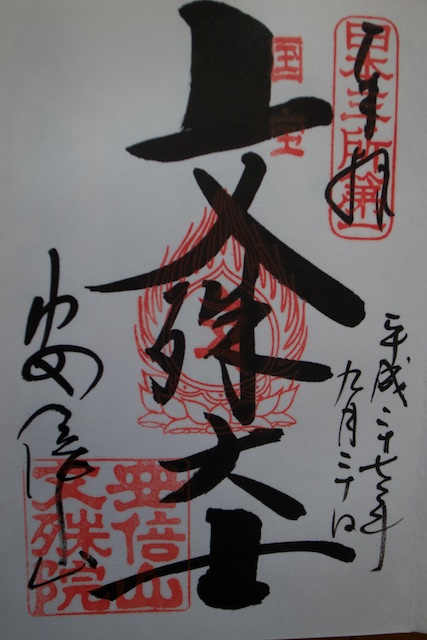 奉拝
日本三所第一
平成二十七年
九月二十日
国宝
文殊大士
安倍山
安倍山
文殊院